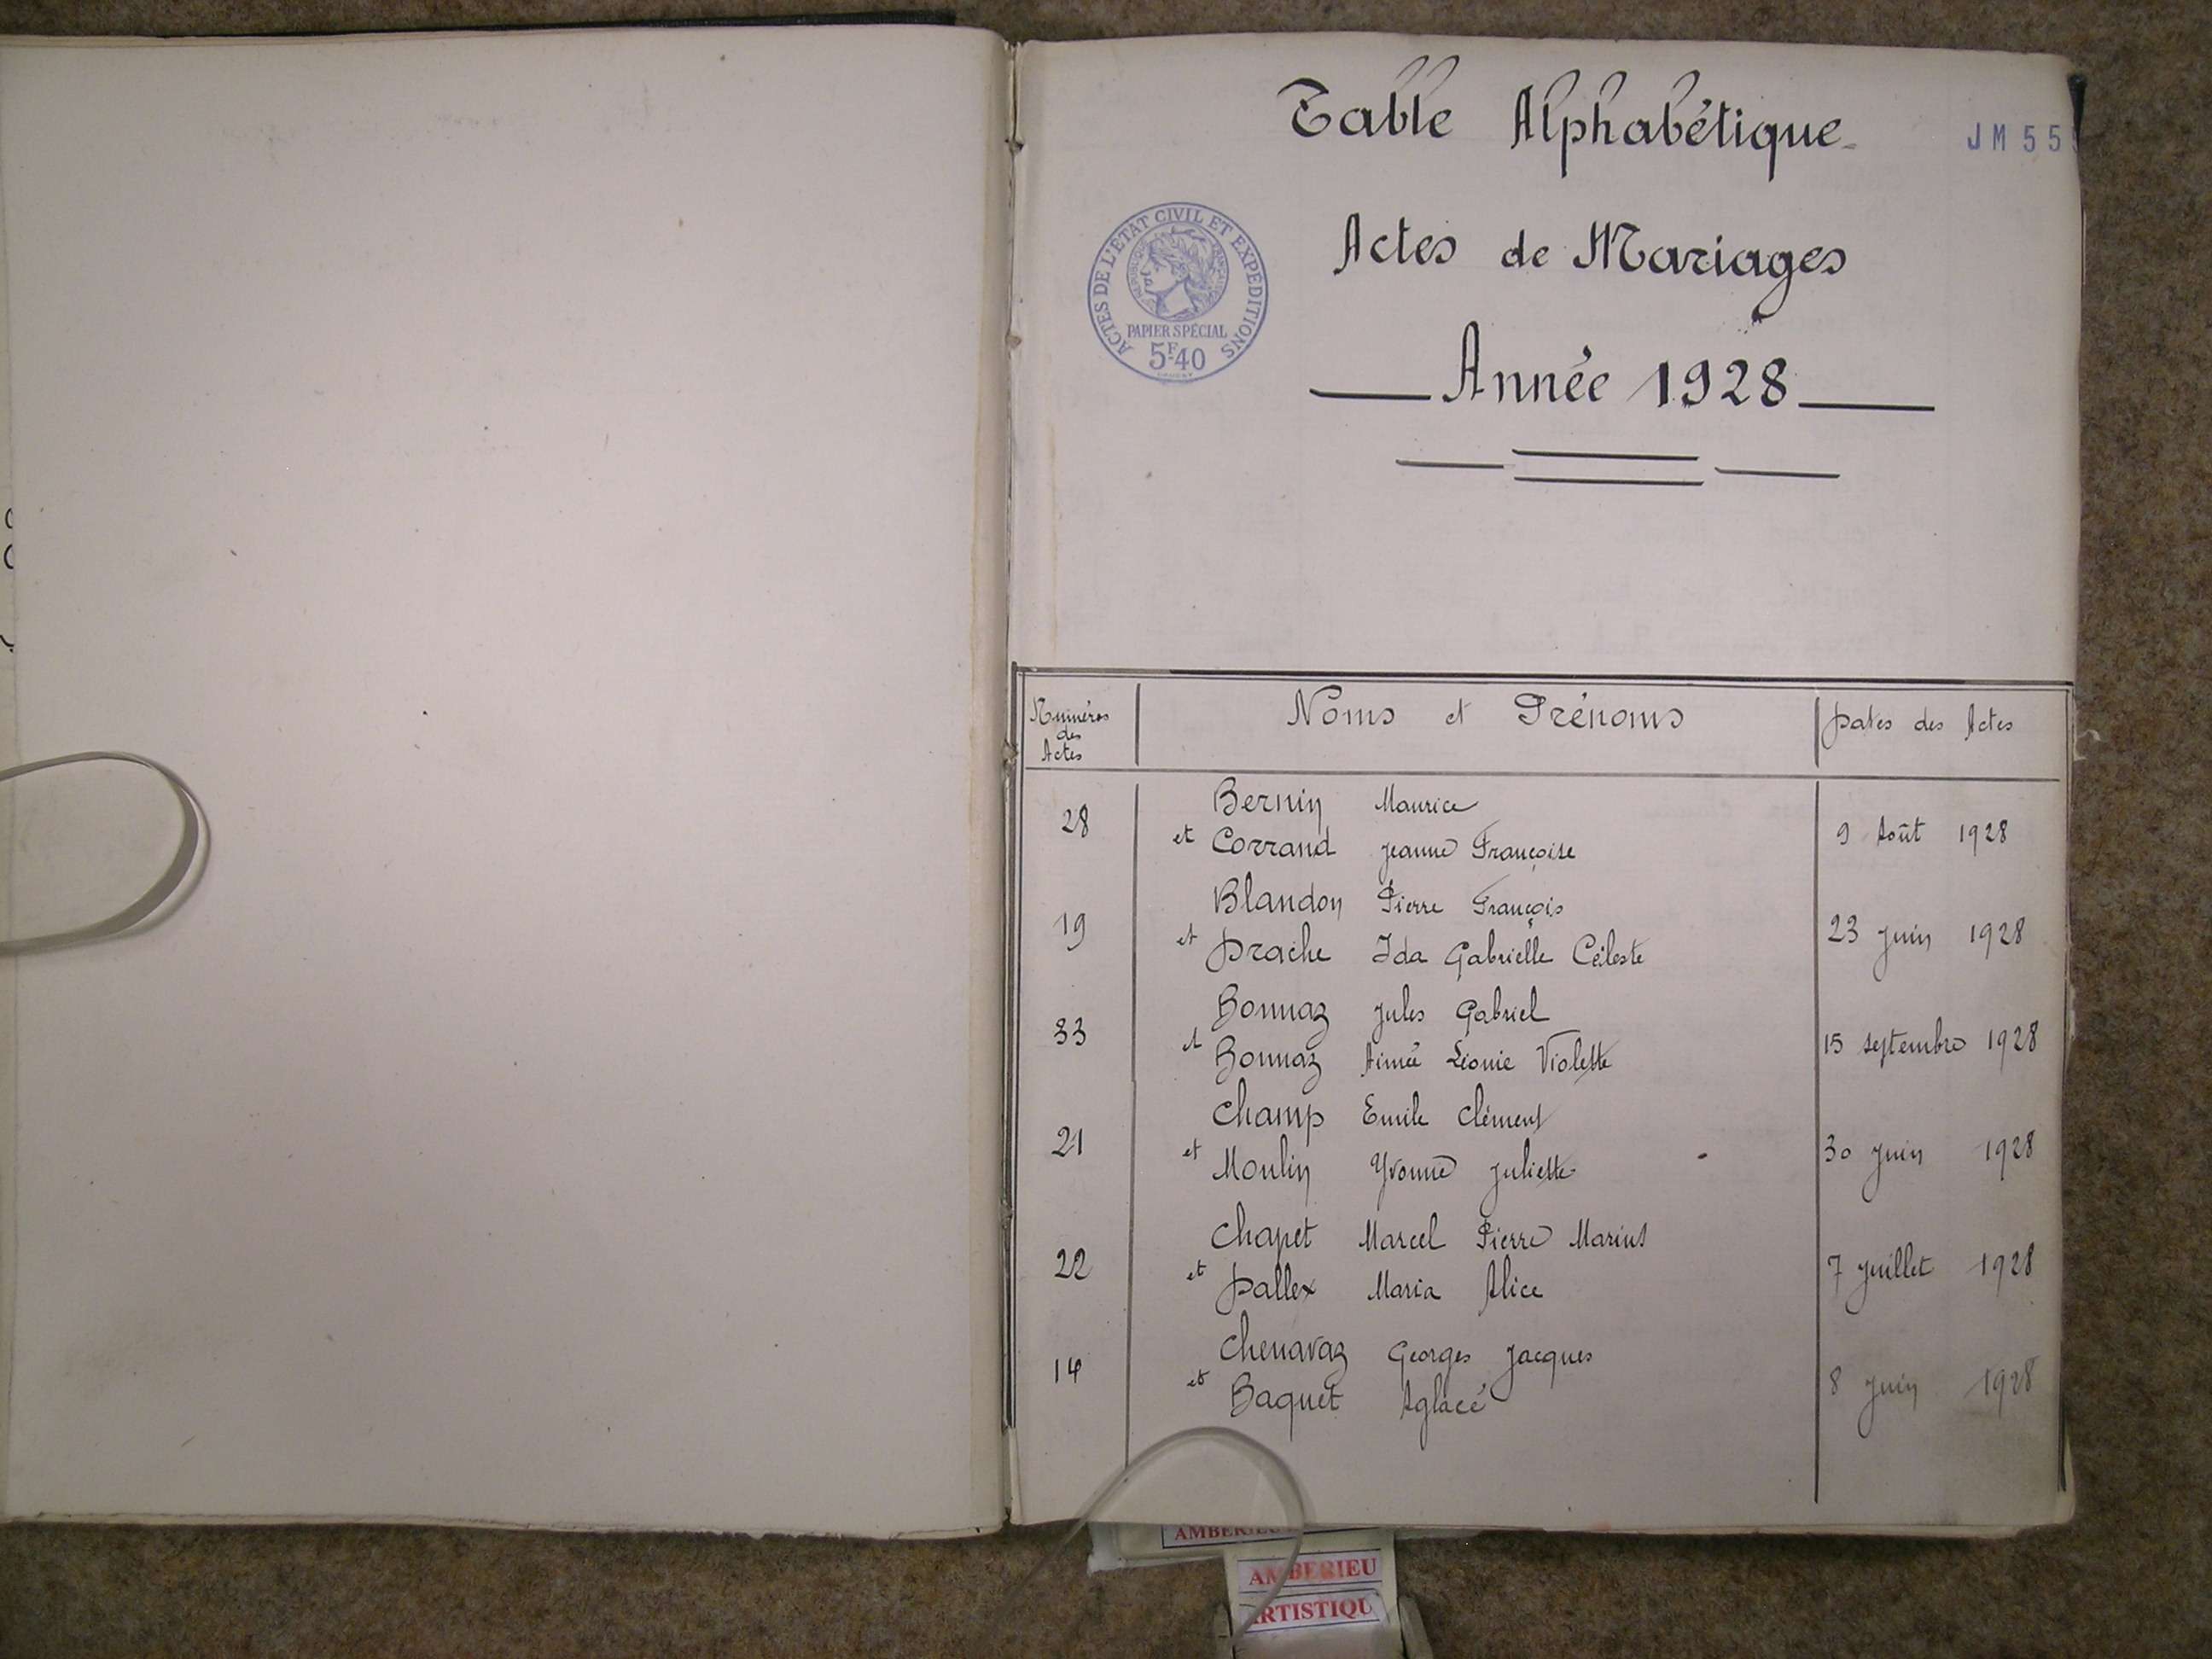 Table Alphabétique
JM 55
Actes de Mariages
Année 1928
ACTES DE L'ÉTAT CIVIL ET EXPÉDITIONS
RÉPUBLIQUE FRANÇAISE
PAPIER SPÉCIAL
5F40
Numéros des Actes
Noms et Prénoms
Dates des Actes
28
Bernin Maurice
et Corrand Jeanne Françoise
9 Août 1928
19
Blandon Pierre François
et Drache Ida Gabrielle Céleste
23 juin 1928
33
Bonnaz Jules Gabriel
et Bonnaz Aimée Léonie Violette
15 septembre 1928
21
Champ Emile Clément
et Moulin Yvonne Juliette
30 juin 1928
22
Chapet Marcel Pierre Marius
et Dallex Maria Alice
7 juillet 1928
14
Chenavaz Georges Jacques
et Baquet Aglacé
8 juin 1928
AMBERIEU
AMBERIEU
ARTISTIQU